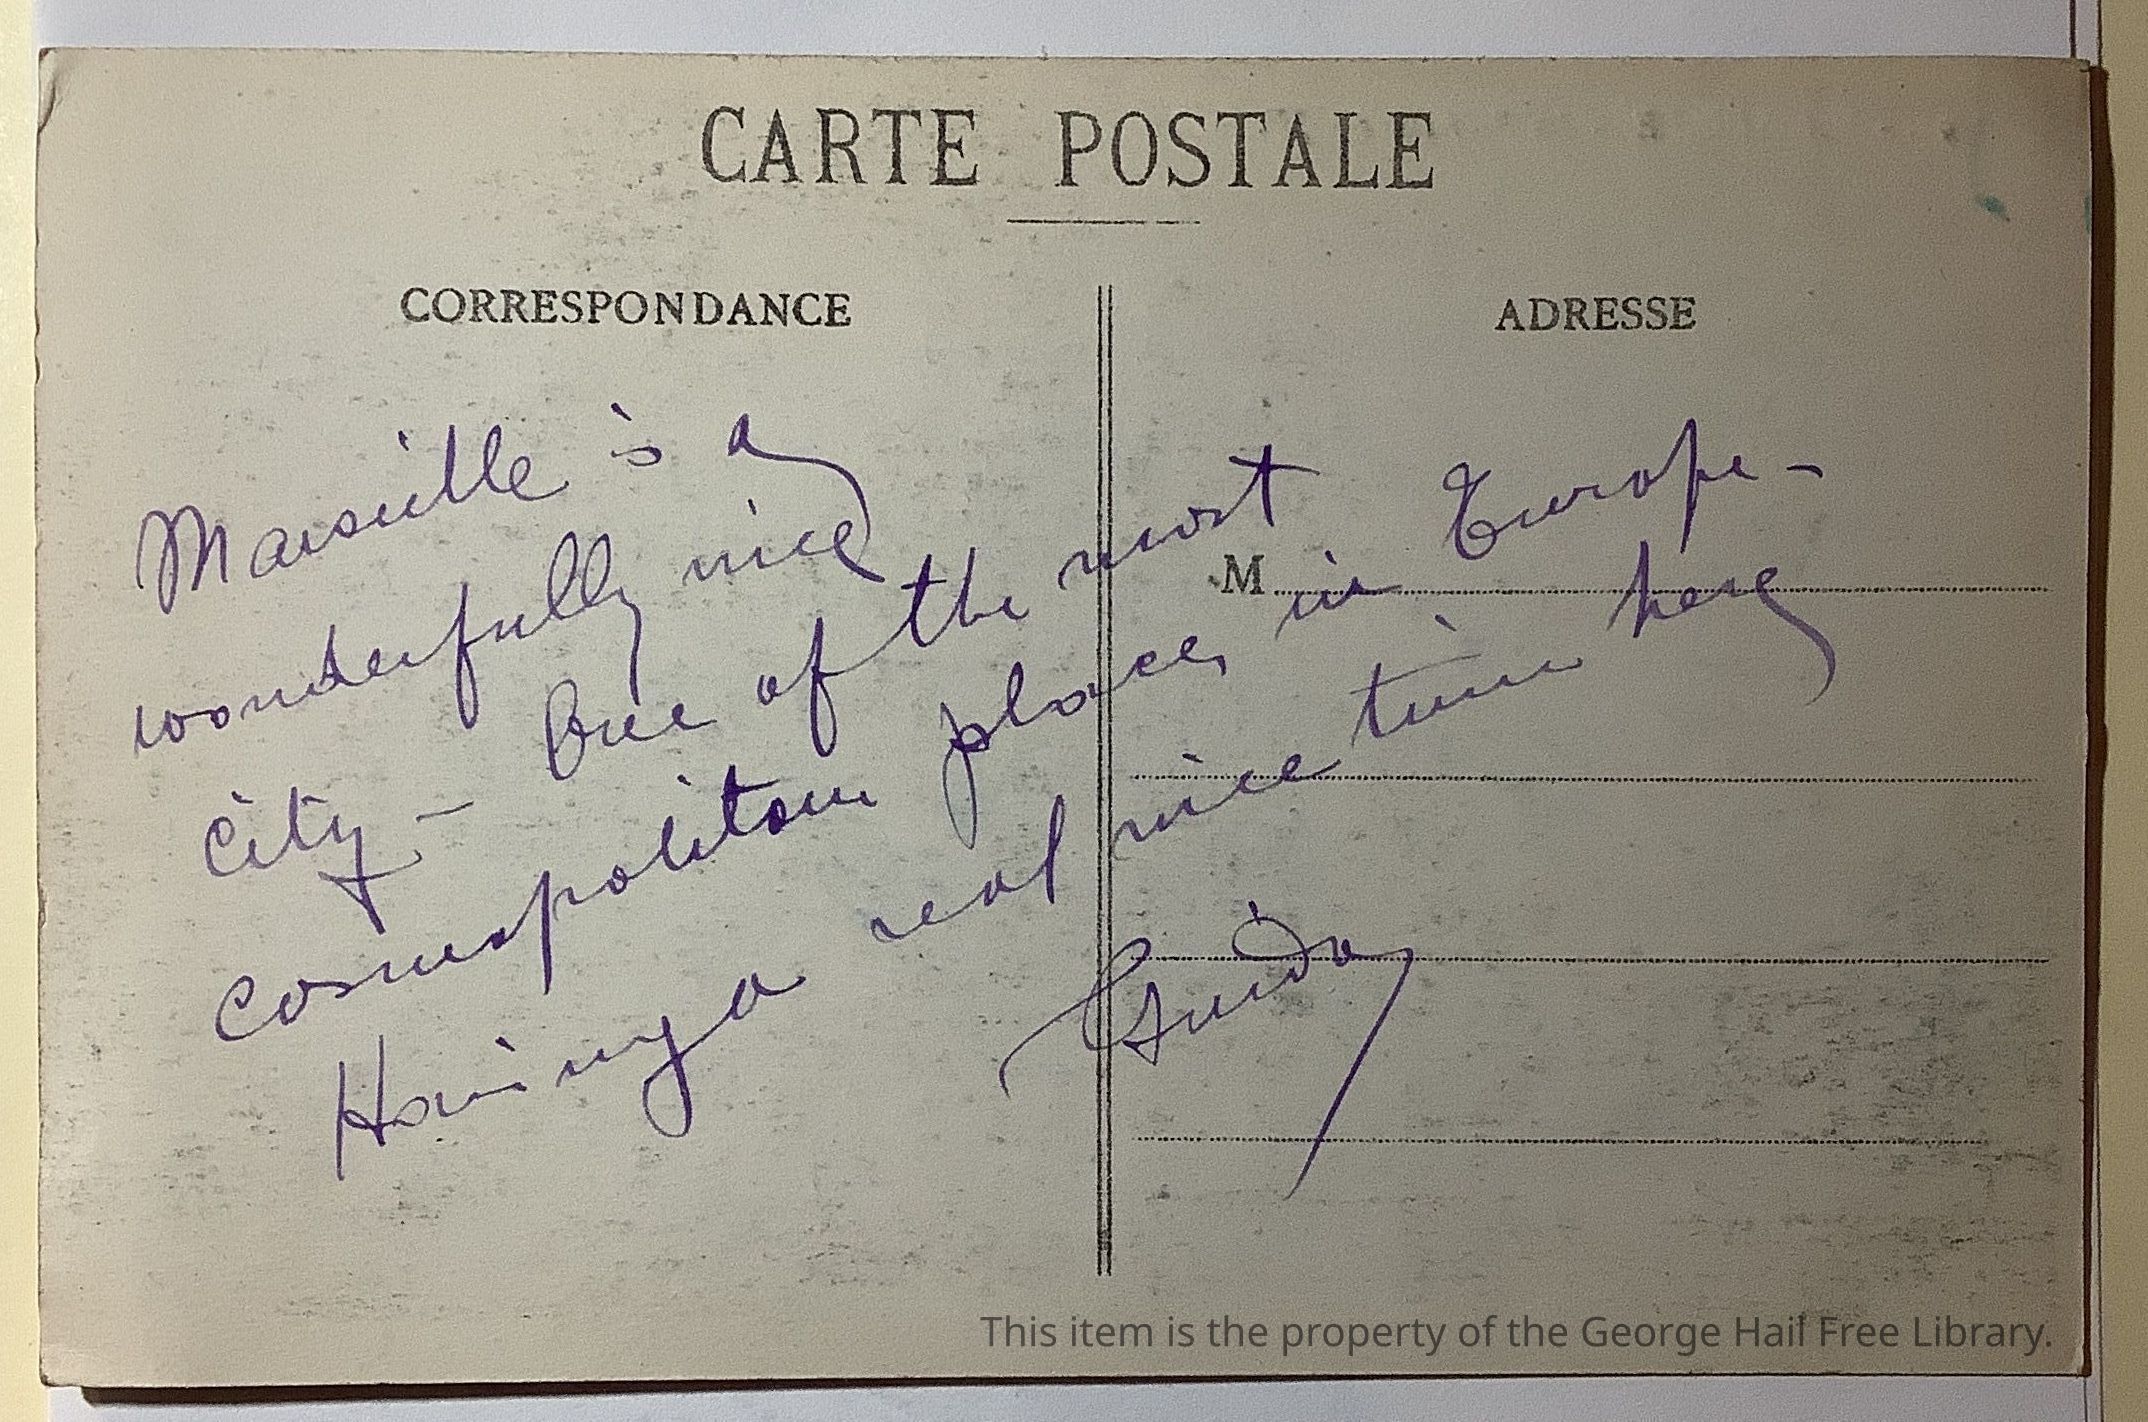 CARTE POSTALE
CORRESPONDANCE
ADRESSE
M
Marseille is a
wonderfully nice
City - One of the most
cosmopolitan places in Europe -
Having a real nice time here
Guido
This item is the property of the George Hail Free Library.